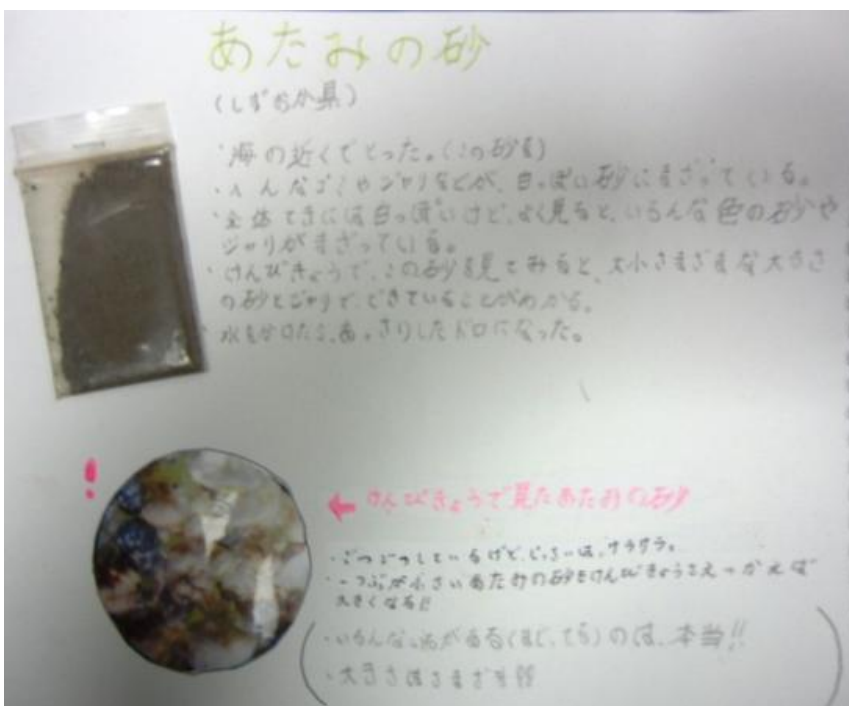 あたみの砂
(しずおか県)
・海の近くでとった。(この砂を)
・へんなゴミやジャリなどが、白っぽい砂にまざっている。
・全体てきには白っぽいけど、よく見ると、いろんな色の砂や
ジャリがまざっている。
・けんびきょうで、この砂を見てみると、大小さまざまな大きさ
の砂とジャリで、できていることがわかる。
・水をかけたら、あっさりしたドロになった。
!
← けんびきょうで見たあたみの砂
・ごつごつしているけど、じっさいは、サラサラ。
・一つぶが小さいあたみの砂もけんびきょうさえつかえば
大きくなる!!
・いろんな色がある(まじってる)のは、本当!!
・大きさはさまざま!!